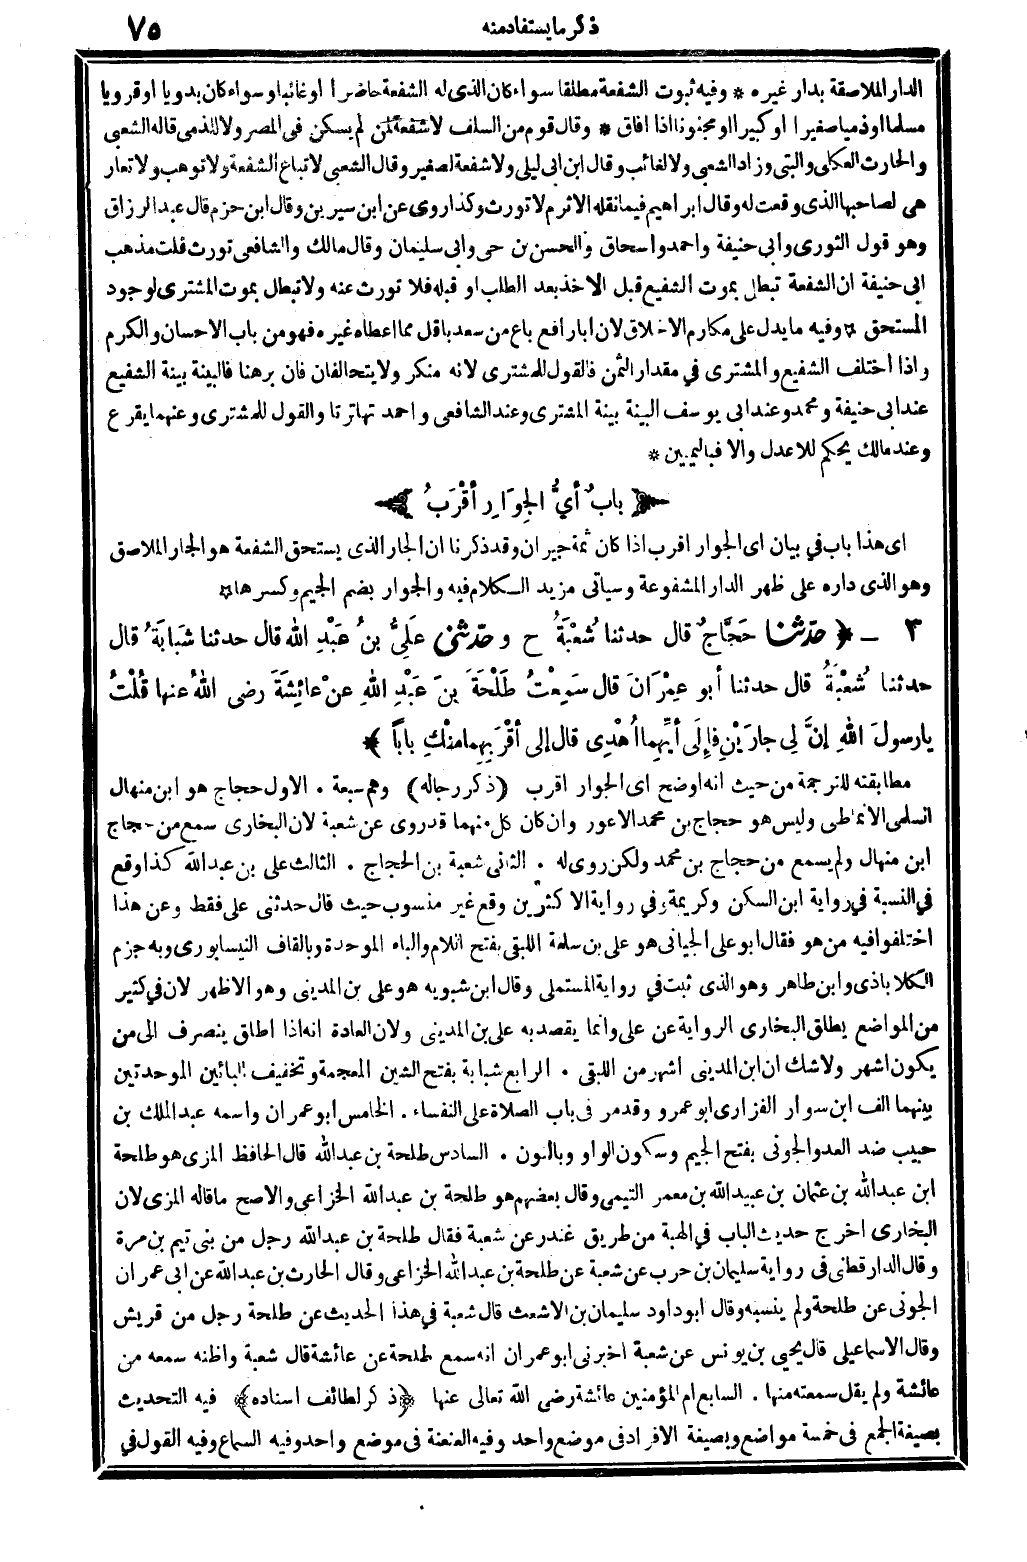 ذكر ما يستفاد منه
٧٥
الدار الملاصقة بدار غيره * وفيه ثبوت الشفعة مطلقا سواء كان الذى له الشفعة حاضرا أو غائبا وسواء كان بدويا أو قرويا
مسلما أو ذميا صغيرا أو كبيرا أو مجنونا اذا افاق * وقال قوم من السلف لا شفعة لمن لم يسكن فى المصر ولا للذمى قاله الشعبى
والحارث العكلى والبتى وزاد الشعبى ولا لغائب وقال ابن ابى ليلى ولا شفعة لصغير وقال الشعبى لا تباع الشفعة ولا توهب ولا تعار
هى لصاحبها الذى وقعت له وقال ابراهيم فيما نقله الاثرم لا تورث وكذا روى عن ابن سيرين وقال ابن حزم قال عبد الرزاق
وهو قول الثورى وأبى حنيفة واحمد واسحاق والحسن بن حى وأبى سليمان وقال مالك والشافعى تورث قلت مذهب
ابى حنيفة ان الشفعة تبطل بموت الشفيع قبل الاخذ بعد الطلب او قبله فلا تورث عنه ولا تبطل بموت المشترى لوجود
المستحق * وفيه ما يدل على مكارم الاخلاق لان ابا رافع باع من سعد باقل مما اعطاه غيره فهو من باب الاحسان والكرم
واذا أختلف الشفيع والمشترى في مقدار الثمن فالقول للمشترى لانه منكر ولا يتحالفان فان برهنا فالبينة بينة الشفيع
عند ابى حنيفة ومحمد وعند ابى يوسف البينة بينة المشترى وعند الشافعى واحمد تهاترتا والقول للمشترى وعنهما يقرع
وعند مالك يحكم للاعدل والا فباليمين *
باب أيُّ الجِوَارِ أقْرَبُ
اى هذا باب في بيان اى الجوار اقرب اذا كان ثمة جيران وقد ذكرنا ان الجار الذى يستحق الشفعة هو الجار الملاصق
وهو الذى داره على ظهر الدار المشفوعة وسيأتى مزيد الكلام فيه والجوار بضم الجيم وكسرها *
٣ ـ ﴿ حدّثنا حَجَّاجٌ قال حدثنا شُعْبَةُ ح وحدّثنى عَلِيُّ بنُ عَبْدِ اللهِ قال حدثنا شَبَابَةُ قال
حدثنا شُعْبَةُ قال حدثنا أبو عِمْرَانَ قال سَمِعْتُ طَلْحَةَ بنَ عَبْدِ اللهِ عنْ عائِشَةَ رضى اللهُ عنها قُلْتُ
يا رسولَ اللهِ إنَّ لِي جارَيْنِ فإلَى أيِّهِما أُهْدِى قال إلى أقْرَبِهِما مِنْكِ باباً ﴾ *
مطابقته للترجمة من حيث انه اوضح اى الجوار اقرب (ذكر رجاله) وهم سبعة . الاول حجاج هو ابن منهال
السلمى الانماطى وليس هو حجاج بن محمد الاعور وان كان كل منهما قد روى عن شعبة لان البخارى سمع من حجاج
ابن منهال ولم يسمع من حجاج بن محمد ولكن روى له . الثانى شعبة بن الحجاج . الثالث على بن عبد الله كذا وقع
في النسبة في رواية ابن السكن وكريمة وفي رواية الاكثرين وقع غير منسوب حيث قال حدثنى على فقط وعن هذا
اختلفوا فيه من هو فقال ابو على الجيانى هو على بن سلمة اللبقى بفتح اللام والباء الموحدة وبالقاف النيسابورى وبه جزم
الكلاباذى وابن طاهر وهو الذى ثبت في رواية المستملى وقال ابن شبويه هو على بن المدينى وهو الاظهر لان في كثير
من المواضع يطلق البخارى الرواية عن على وانما يقصد به على بن المدينى ولان العادة انه اذا اطلق ينصرف الى من
يكون اشهر ولا شك ان ابن المدينى اشهر من اللبقى . الرابع شبابة بفتح الشين المعجمة وتخفيف البائين الموحدتين
بينهما الف ابن سوار الفزارى ابو عمرو وقد مر فى باب الصلاة على النفساء . الخامس ابو عمران واسمه عبد الملك بن
حبيب ضد العدو الجونى بفتح الجيم وسكون الواو وبالنون . السادس طلحة بن عبد الله قال الحافظ المزى هو طلحة
ابن عبد الله بن عثمان بن عبيد الله بن معمر التيمى وقال بعضهم هو طلحة بن عبد الله الخزاعى والاصح ما قاله المزى لان
البخارى اخرج حديث الباب في الهبة من طريق غندر عن شعبة فقال طلحة بن عبد الله رجل من بنى تيم بن مرة
وقال الدارقطنى فى رواية سليمان بن حرب عن شعبة عن طلحة بن عبد الله الخزاعى وقال الحارث بن عبد الله عن ابى عمران
الجونى عن طلحة ولم ينسبه وقال ابو داود سليمان بن الاشعث قال شعبة في هذا الحديث عن طلحة رجل من قريش
وقال الاسماعيلى قال يحيى بن يونس عن شعبة اخبرنى ابو عمران انه سمع طلحة عن عائشة قال شعبة واظنه سمعه من
عائشة ولم يقل سمعته منها . السابع ام المؤمنين عائشة رضى الله تعالى عنها ﴿ذكر لطائف اسناده﴾ فيه التحديث
بصيغة الجمع فى خمسة مواضع وبصيغة الافراد فى موضع واحد وفيه العنعنة فى موضع واحد وفيه السماع وفيه القول في